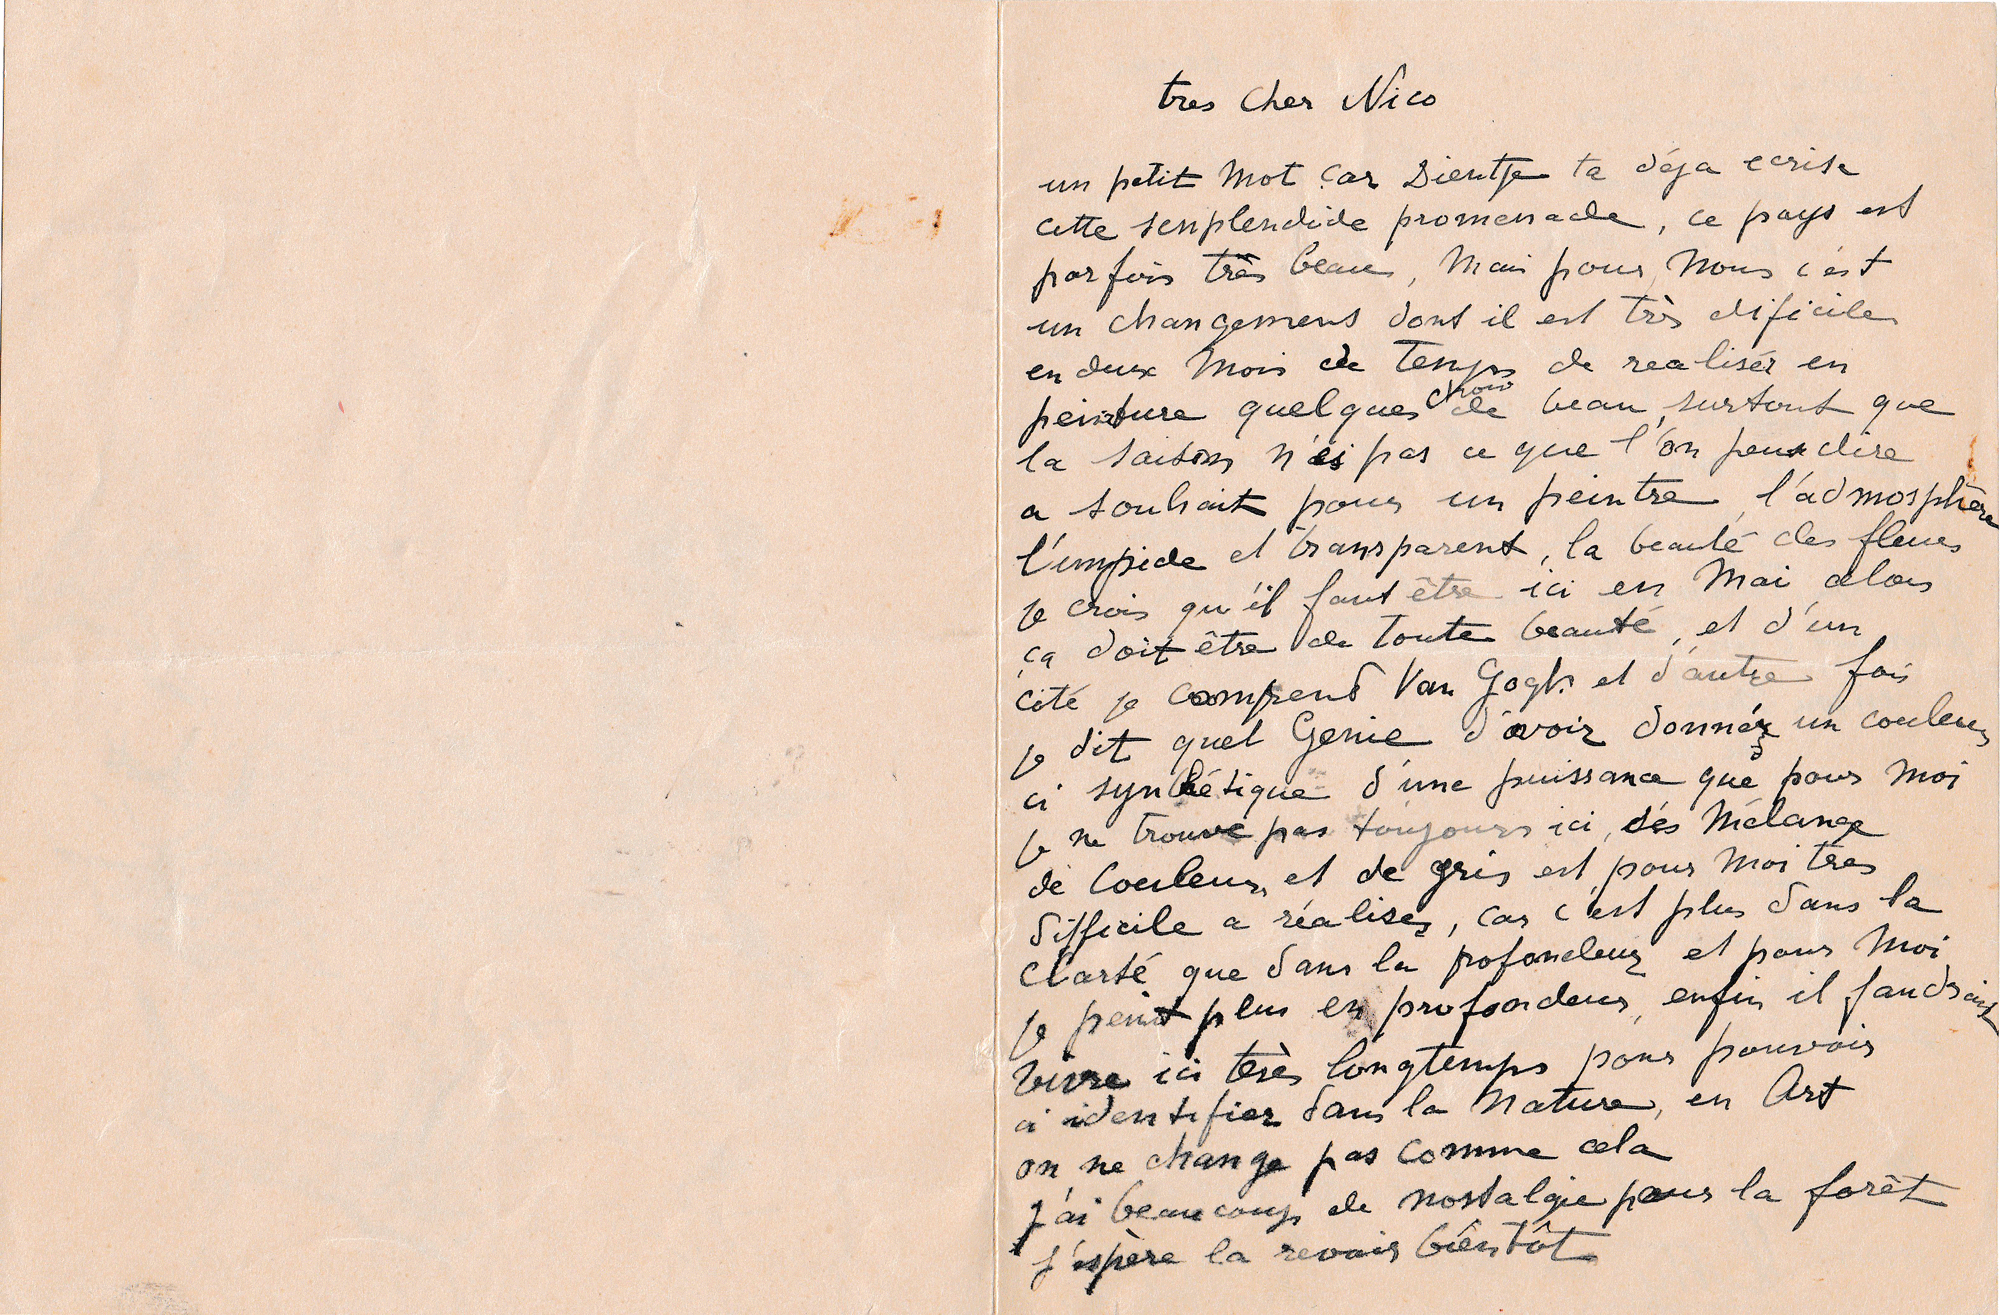 tres cher Nico
un petit mot car Sientje ta déja ecrise
cette senplendide promenade, ce pays est
parfois très beau, mai pour nous c'est
un changement dont il est très dificile
en deux mois de temps de realisér en
peinture quelques chose de beau, surtout que
la saison n'és pas ce que l'on peux dire
a souhait pour un peintre, l'admosphère
l'impide et transparent, la beauté des fleurs
je crois qu'il faut être ici en Mai alors
ça doit être de toute beauté, et d'un
cité je comprend Van Gogh et d'autre fois
je dit quel Genie d'avoir donnéz un couleur
ci synthétique d'une puissance que pour moi
je ne trouve pas toujours ici, dés mélange
de Couleur, et de gris est pour moi tres
difficile a réaliser, car c'est plus dans la
Clarté que dans la profondeur et pour moi
je peint plus en profondeur, enfin il faudrait
vivre ici terès longtemps pour pouvoir
ci identifier dans la Nature, en Art
on ne change pas comme cela
J'ai beaucoup de nostalgie pour la forêt
j'éspère la revoir bientôt